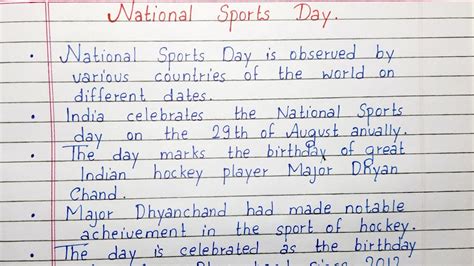 National Sports Day.
• National Sports Day is observed by
various countries of the world on
different dates.
• India celebrates the National Sports
day on the 29th of August anually.
• The day marks the birthday of great
Indian hockey player Major Dhyan
Chand.
• Major Dhyanchand had made notable
acheivement in the sport of hockey.
• The day is celebrated as the birthday
since 2012